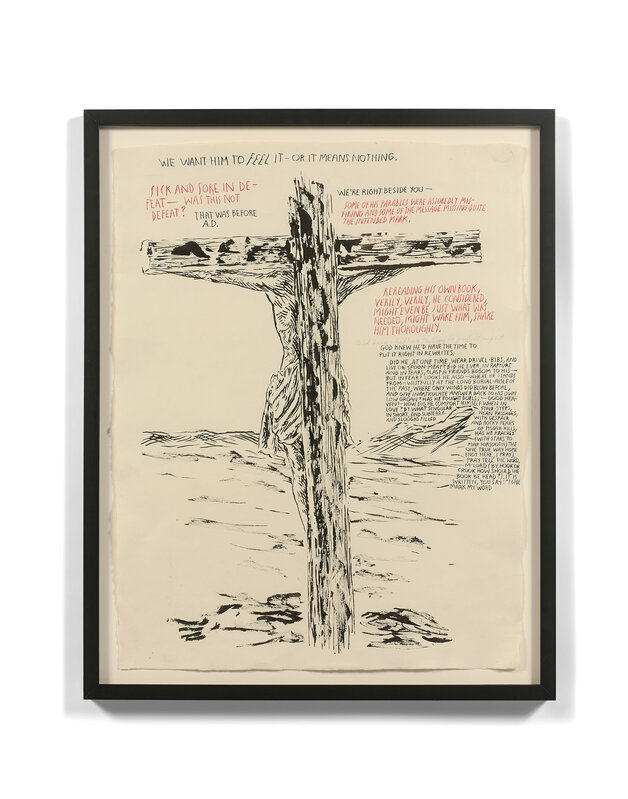 WE WANT HIM TO FEEL IT – OR IT MEANS NOTHING.
SICK AND SORE IN DE-
FEAT — WAS THIS NOT
DEFEAT? THAT WAS BEFORE
A.D.
WE'RE RIGHT BESIDE YOU —
SOME OF HIS PARABLES WERE ASSUREDLY MIS-
FIRING AND SOME OF THE MESSAGE MISSING QUITE
THE INTENDED MARK.
REREADING HIS OWN BOOK,
VERILY, VERILY, HE CONSIDERED,
MIGHT EVEN BE JUST WHAT WAS
NEEDED, MIGHT WAKE HIM, SHAKE
HIM THOROUGHLY.
GOD KNEW HE'D HAVE THE TIME TO
PUT IT RIGHT IN REWRITES.
DID HE, AT ONE TIME, WEAR DRIVEL-BIBS, AND
LIVE ON SPOON-MEAT? DID HE EVER, IN RAPTURE
AND IN TEARS, CLASP A FRIEND'S BOSOM TO HIS —
BUT IN FEAR? LOOKS HE ALSO – WHERE HE STANDS
FROM – WISTFULLY AT THE LONG BURIAL-AISLE OF
THE PAST, WHERE ONLY WINDS DID BLOW BEFORE,
AND GIVE INARTICULATE ANSWER BACK TO HIS OWN
LOW GROAN? HAS HE FOUGHT DUELS; — GOOD HEA-
VEN! — HOW DID HE COMFORT HIMSELF WHEN IN
LOVE? BY WHAT SINGULAR STAIR-STEPS,
IN SHORT, AND SUBTERRA- NEAN PASSAGES,
AND SLOUGHS FILLED WITH DESPAIR,
AND ROCKY PEAKS
OF PISGAH HILLS,
HAS HE REACHED
(WITH STARS TO
MAP FORSOOTH) THE
ONE TRUE WAY HOME
(NOT HERE, I PRAY).
PRAY TELL THE WORD,
M'LORD (BY HOOK OR
CROOK HOW SHOULD THE
BOOK BE READ?). IT IS
WRITTEN, YOU SAY?
MARK MY WORD